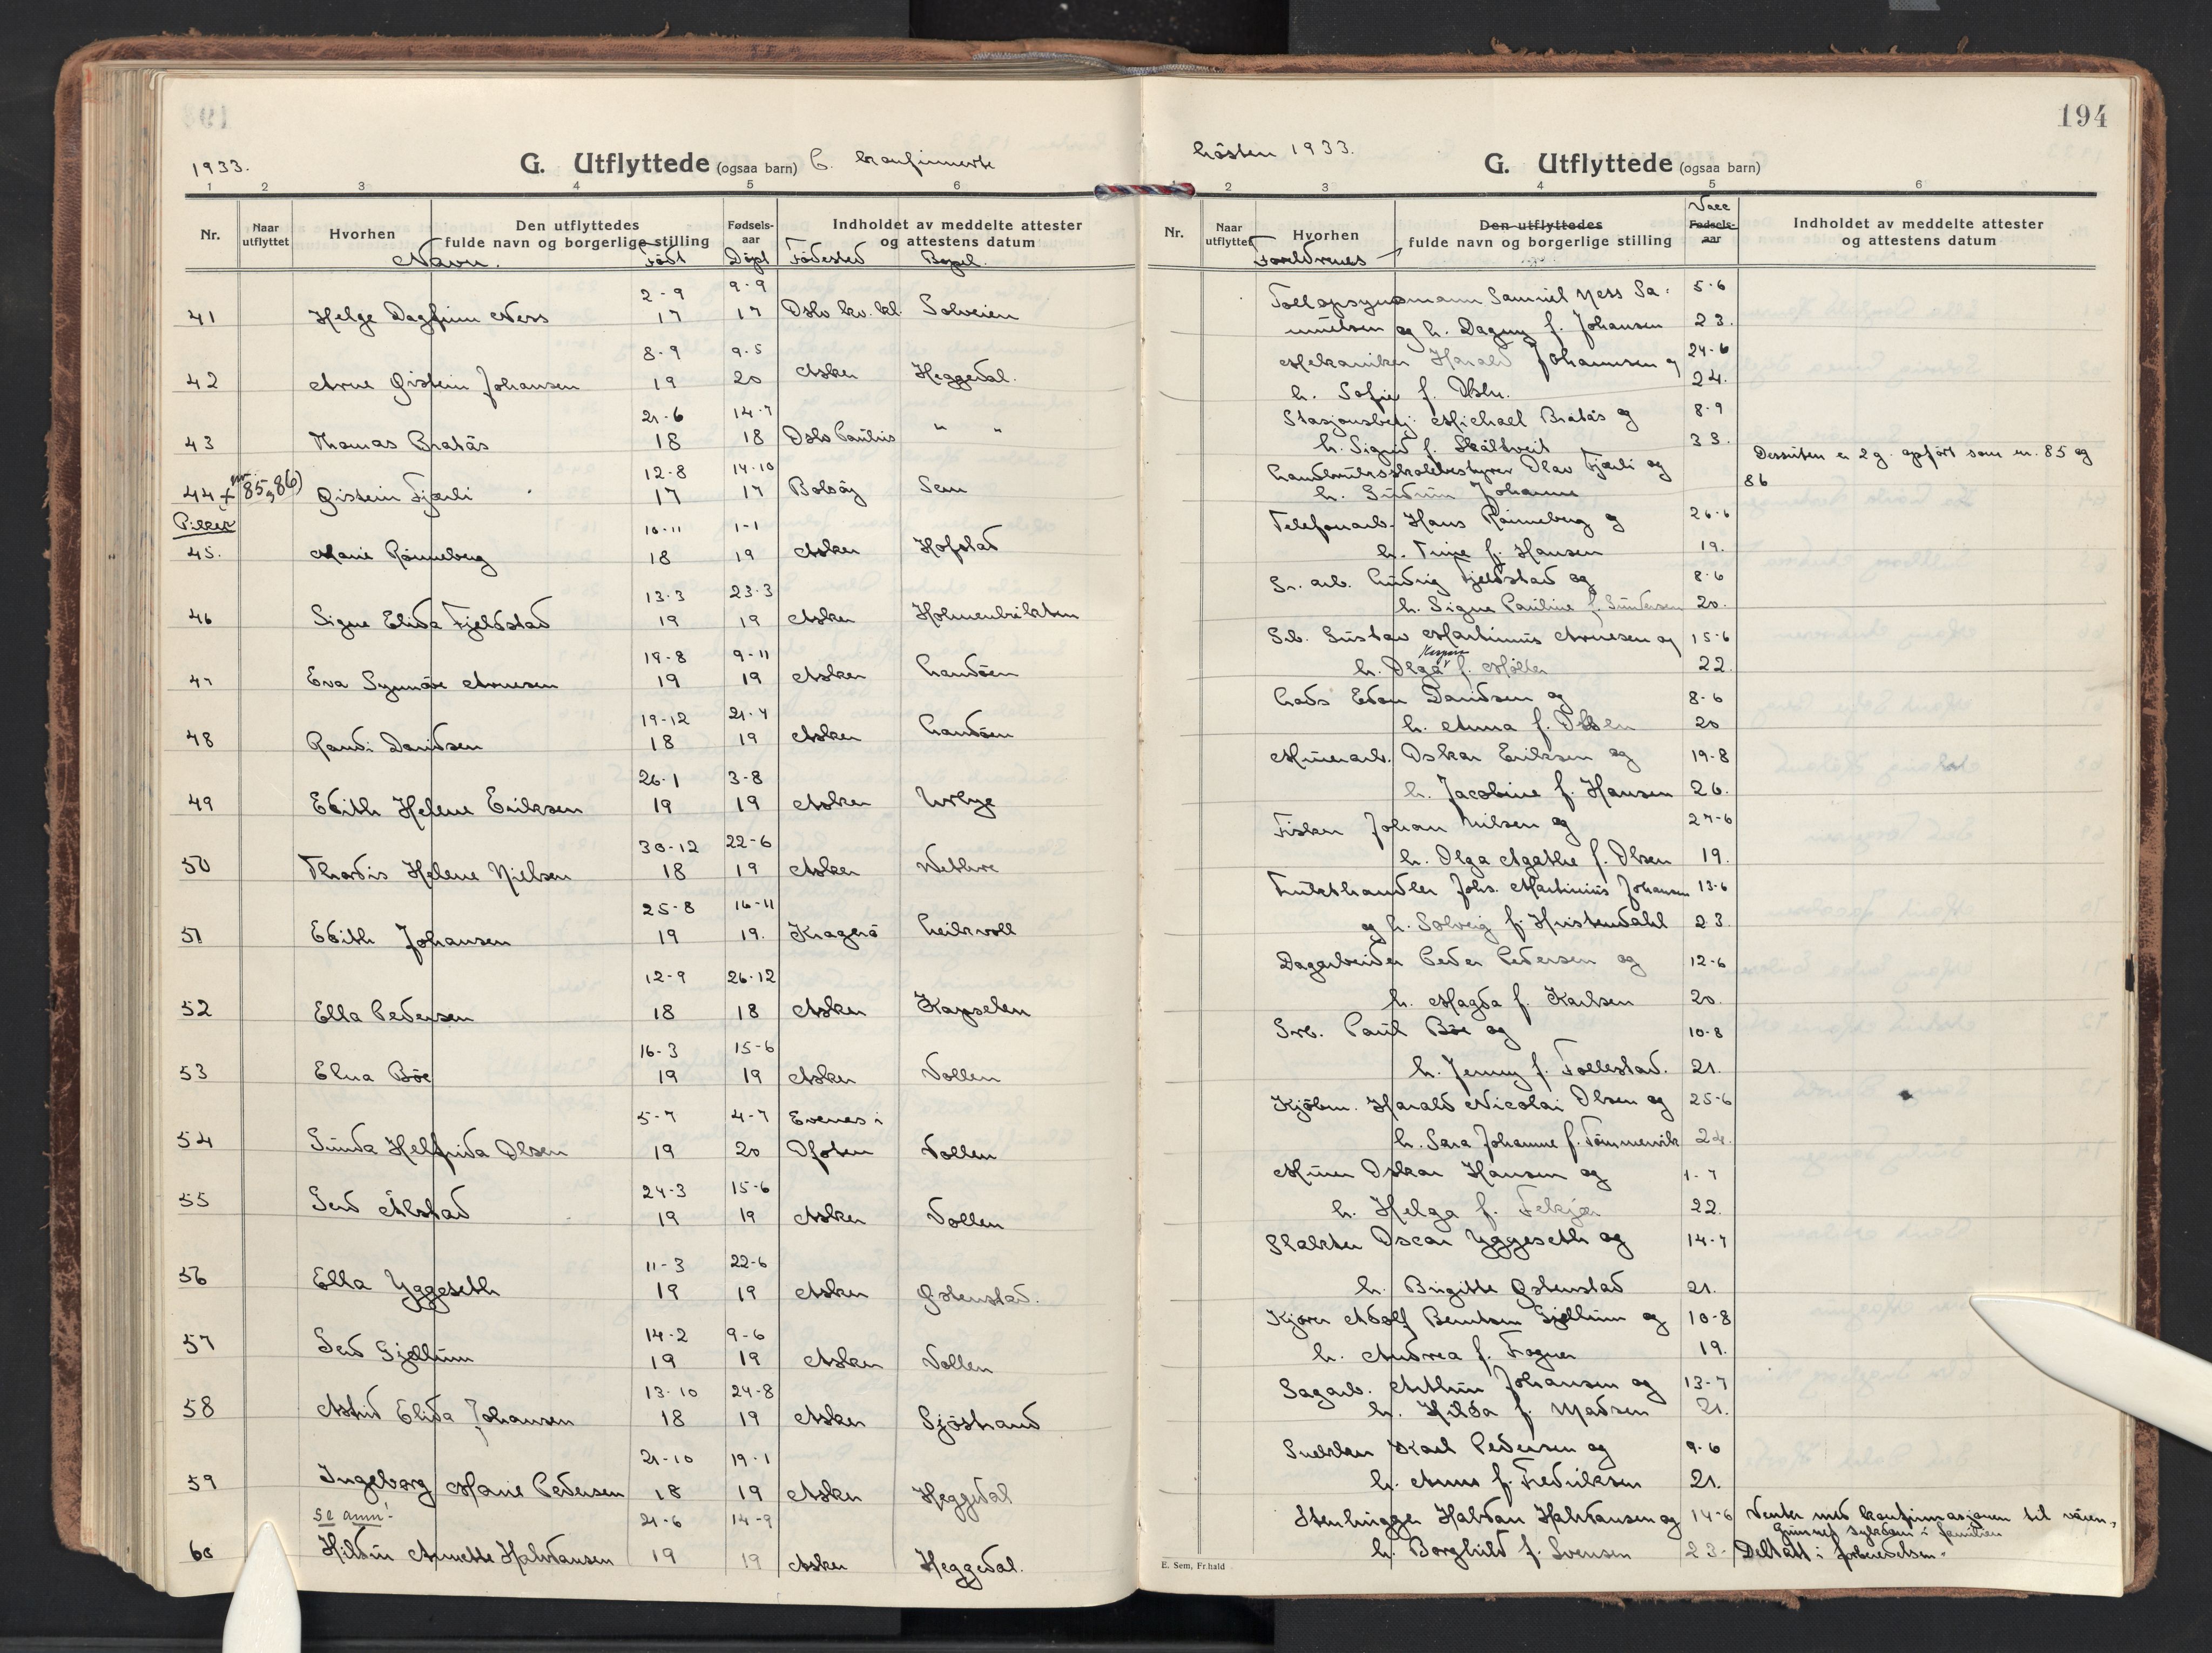 1933.
G. Utflyttede (ogsaa barn) C. konfirmerte
1 2 3 4 5 6
Nr. Naar utflyttet Hvorhen Den utflyttedes fulde navn og borgerlige stilling Fødsels-aar Indholdet av meddelte attester og attestens datum
Navn. Födt Döpt Födested Bopel.
2-9 9-9
41 Helge Dagfinn Ness 17 17 Oslo kv. kl. Solveien
8-9 9-5
42 Arne Øistein Johansen 19 20 Asker Heggedal.
21-6 14-7
43 Thomas Bratås 18 18 Oslo Paulus " "
12-8 14-10
44 + nr. 85, 86) Øistein Fjærli 17 17 Bolsöy Sem
Piker
10-11 1-1
45. Marie Rönneberg 18 19 Asker Hofstad
13-3 23-3
46 Signe Elida Fjeldstad 19 19 Asker Holmenbukten
19-8 9-11
47 Eva Synnöve Arnesen 19 19 Asker Landöen
19-12 21-4
48 Randi Davidsen 18 19 Asker Landöen
26-1 3-8
49 Edith Helene Eriksen 19 19 Asker
30-12 22-6
50 Thordis Helene Nielsen 18 19 Asker Nethre
25-8 16-11
51 Edith Johansen 19 19. Kragerö Leikvoll
12-9 26-12
52 Ella Pedersen 18 18 Asker
16-3 15-6
53 Elna Böe 19 19 Asker Vollen
5-7 4-7 Evenes i
54 Gunda Helfrida Olsen 19 20 Ofoten Vollen
24-3 15-6
55 Gerd Alstad 19 19 Asker Vollen
11-3 22-6
56 Ella Yggeseth 19 19 Asker Østenstad.
14-2 9-6
57 Gerd Gjellum 19 19 Asker Vollen
13-10 24-8
58 Astrid Elida Johansen 18 19 Asker Sjöstrand
21-10 19-1
59 Ingeborg Marie Pedersen 18 19 Asker Heggedal
se anm! 21-6 14-9
60 Hildur Annette Halvdansen 19 19 Asker Heggedal.
194
hösten 1933.
G. Utflyttede (ogsaa barn)
1 2 3 4 5 6
Vacc
Nr. Naar utflyttet Hvorhen Den utflyttedes fulde navn og borgerlige stilling Fødsels-aar Indholdet av meddelte attester og attestens datum
Foreldrenes
Tollopsynsmann Samuel Ness Sa- 5-6
muelsen og h. Dagny f. Johansen 23.
Mekaniker Harald Johannsen og 24-6
h. Sofie f. 24.
Stasjonsbetj. Michael Bratås og 8-9
h. Sigrid f. Skåltveit 33.
Dessuten er 2 g. opfört som nr. 85 og
Landbruksskolebestyrer Olav Fjærli og 86
h. Gudrun Johanne
Telefonarb. Hans Rönneberg og 26-6
h. Tinje f. Hansen 19.
Gr. arb. Ludvig Fjeldstad og 8-6
h. Signe Pauline f. Gundersen 20.
Grb. Gustav Martinius Arnesen og 15-6
h. Olga f. Möller 22.
Lads Edon Davidsen og 8-6
h. Anna f. 20
Murerarb. Oskar Eriksen og 19-8
h. Jacobine f. Hansen 26.
Fisker Johan Nilsen og 27-6
h. Olga Agathe f. Olsen 19.
Frukthandler Johs. Martinius Johansen 13-6
og h. Solveig f. Hustendahl 23.
Dagarbeider Peder Pedersen og 12-6
h. Magda f. Karlsen 20.
Grb. Paul Böe og 10-8
h. Jenny f. Tollestad. 21.
Kjöbm. Harald Nicolai Olsen og 25-6
h. Sara Johanne f. Tömmervik 24.
Murer Oskar Hansen og 1-7
h. Helga f. Fekjær 22.
Slakter Oscar Yggeseth og 14-7
h. Brigitte Østenstad 21.
Kjörer Adolf Berntsen Gjellum og 10-8
h. Andrea f. Fogner 19.
Sagarb. Arthur Johansen og 13-7
h. Hilda f. Madsen 21.
Snekker Karl Pedersen og 9-6
h. Anna f. Fredriksen 21.
Stenhugger Halvdan Halvdansen og 14-6 Venter med konfirmasjonen til våren,
grunnet sykdom i familien
h. Borghild f. Svensen 23. Deltatt i forberedelsen.
E. Sem, Fr.hald